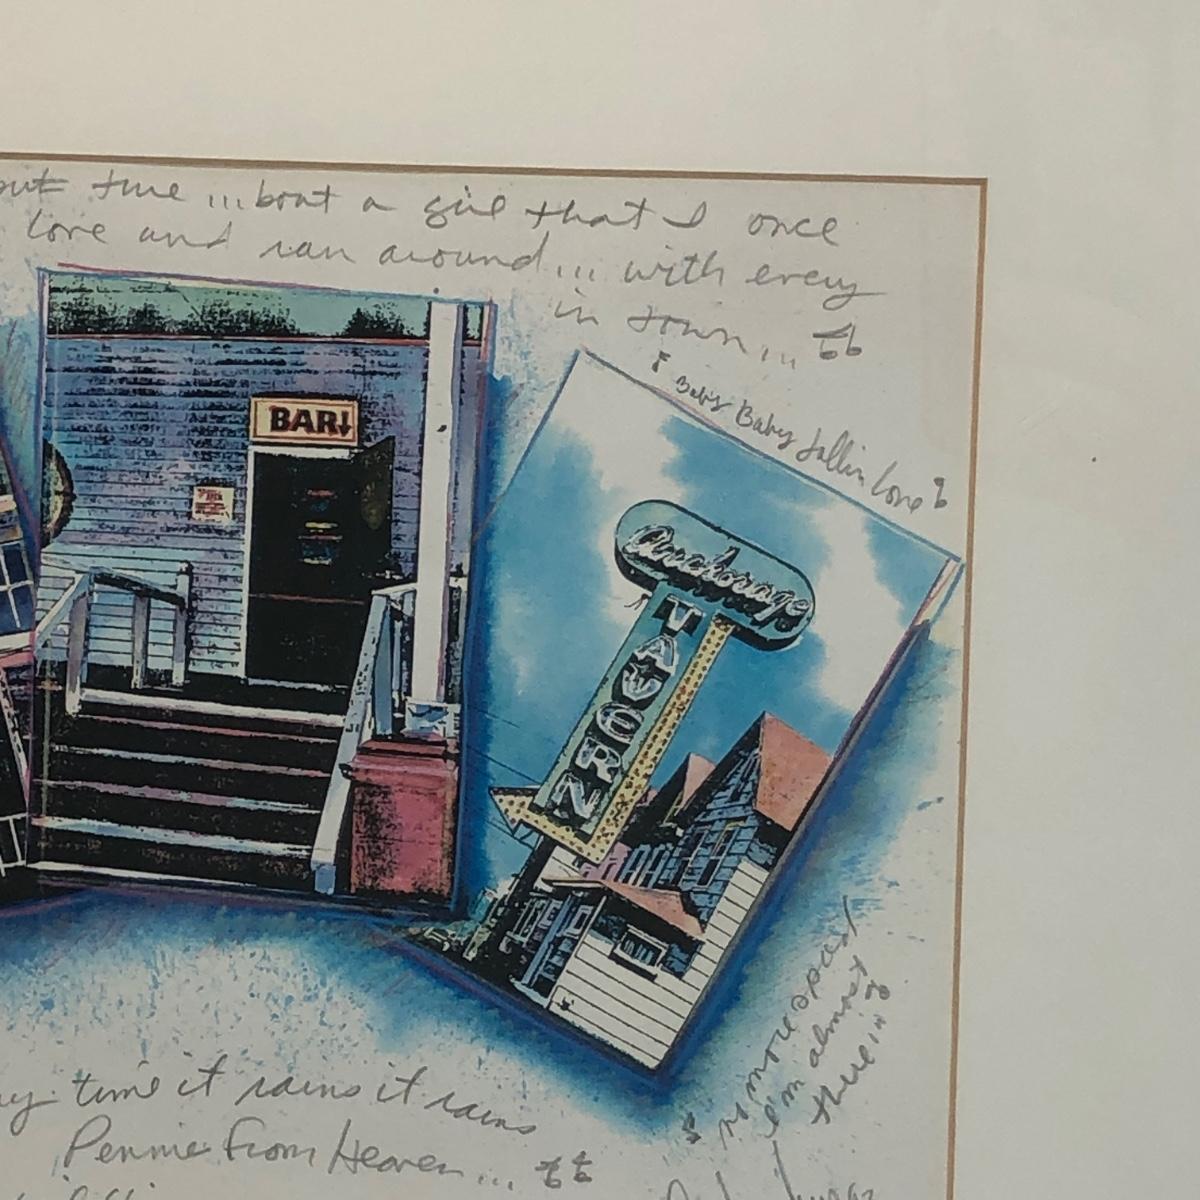 true ...bout a girl that I once
love and ran around... with every
in town...
Baby Baby fallin love
BAR
Anchorage
TAVERN
no more spast
I'm almost
there...
time it rains it rains
Pennie From Heaven...